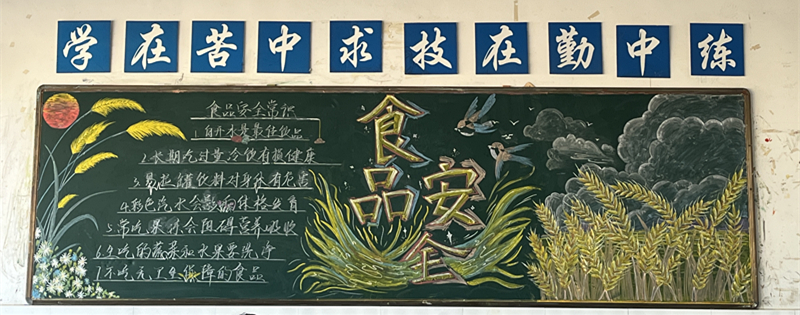 学在苦中求技在勤中练
食品安全常识
1白开水是最佳饮品
2.长期吃过量冷饮有损健康
3.易拉罐饮料对身体有危害
4.彩色汽水会影响体格发育
5常吃果汁会阻碍营养吸收
6生吃的蔬菜和水果要洗净
7不吃无卫生保障的食品
食品安全